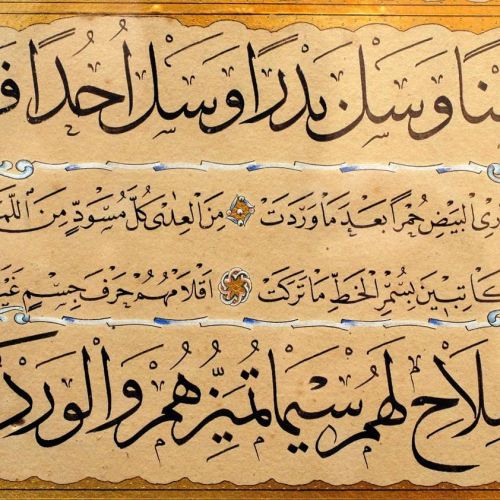 ـنًا وَسَلْ بَدْرًا وَسَلْ اُحُدًا فـ
ـرِى الْبِيضِ حُمْرًا بَعْدَ مَا وَرَدَتْ مِنَ الْعِدٰى كُلَّ مُسْوَدٍّ مِنَ اللِّمَـ
ـكَاتِبِينَ بِسُمْرِ الْخَطِّ مَا تَرَكَتْ اَقْلَامُهُمْ حَرْفَ جِسْمٍ غَيْـ
ـلَاحِ لَهُمْ سِيمَا تُمَيِّزُهُمْ وَالْوَرْد